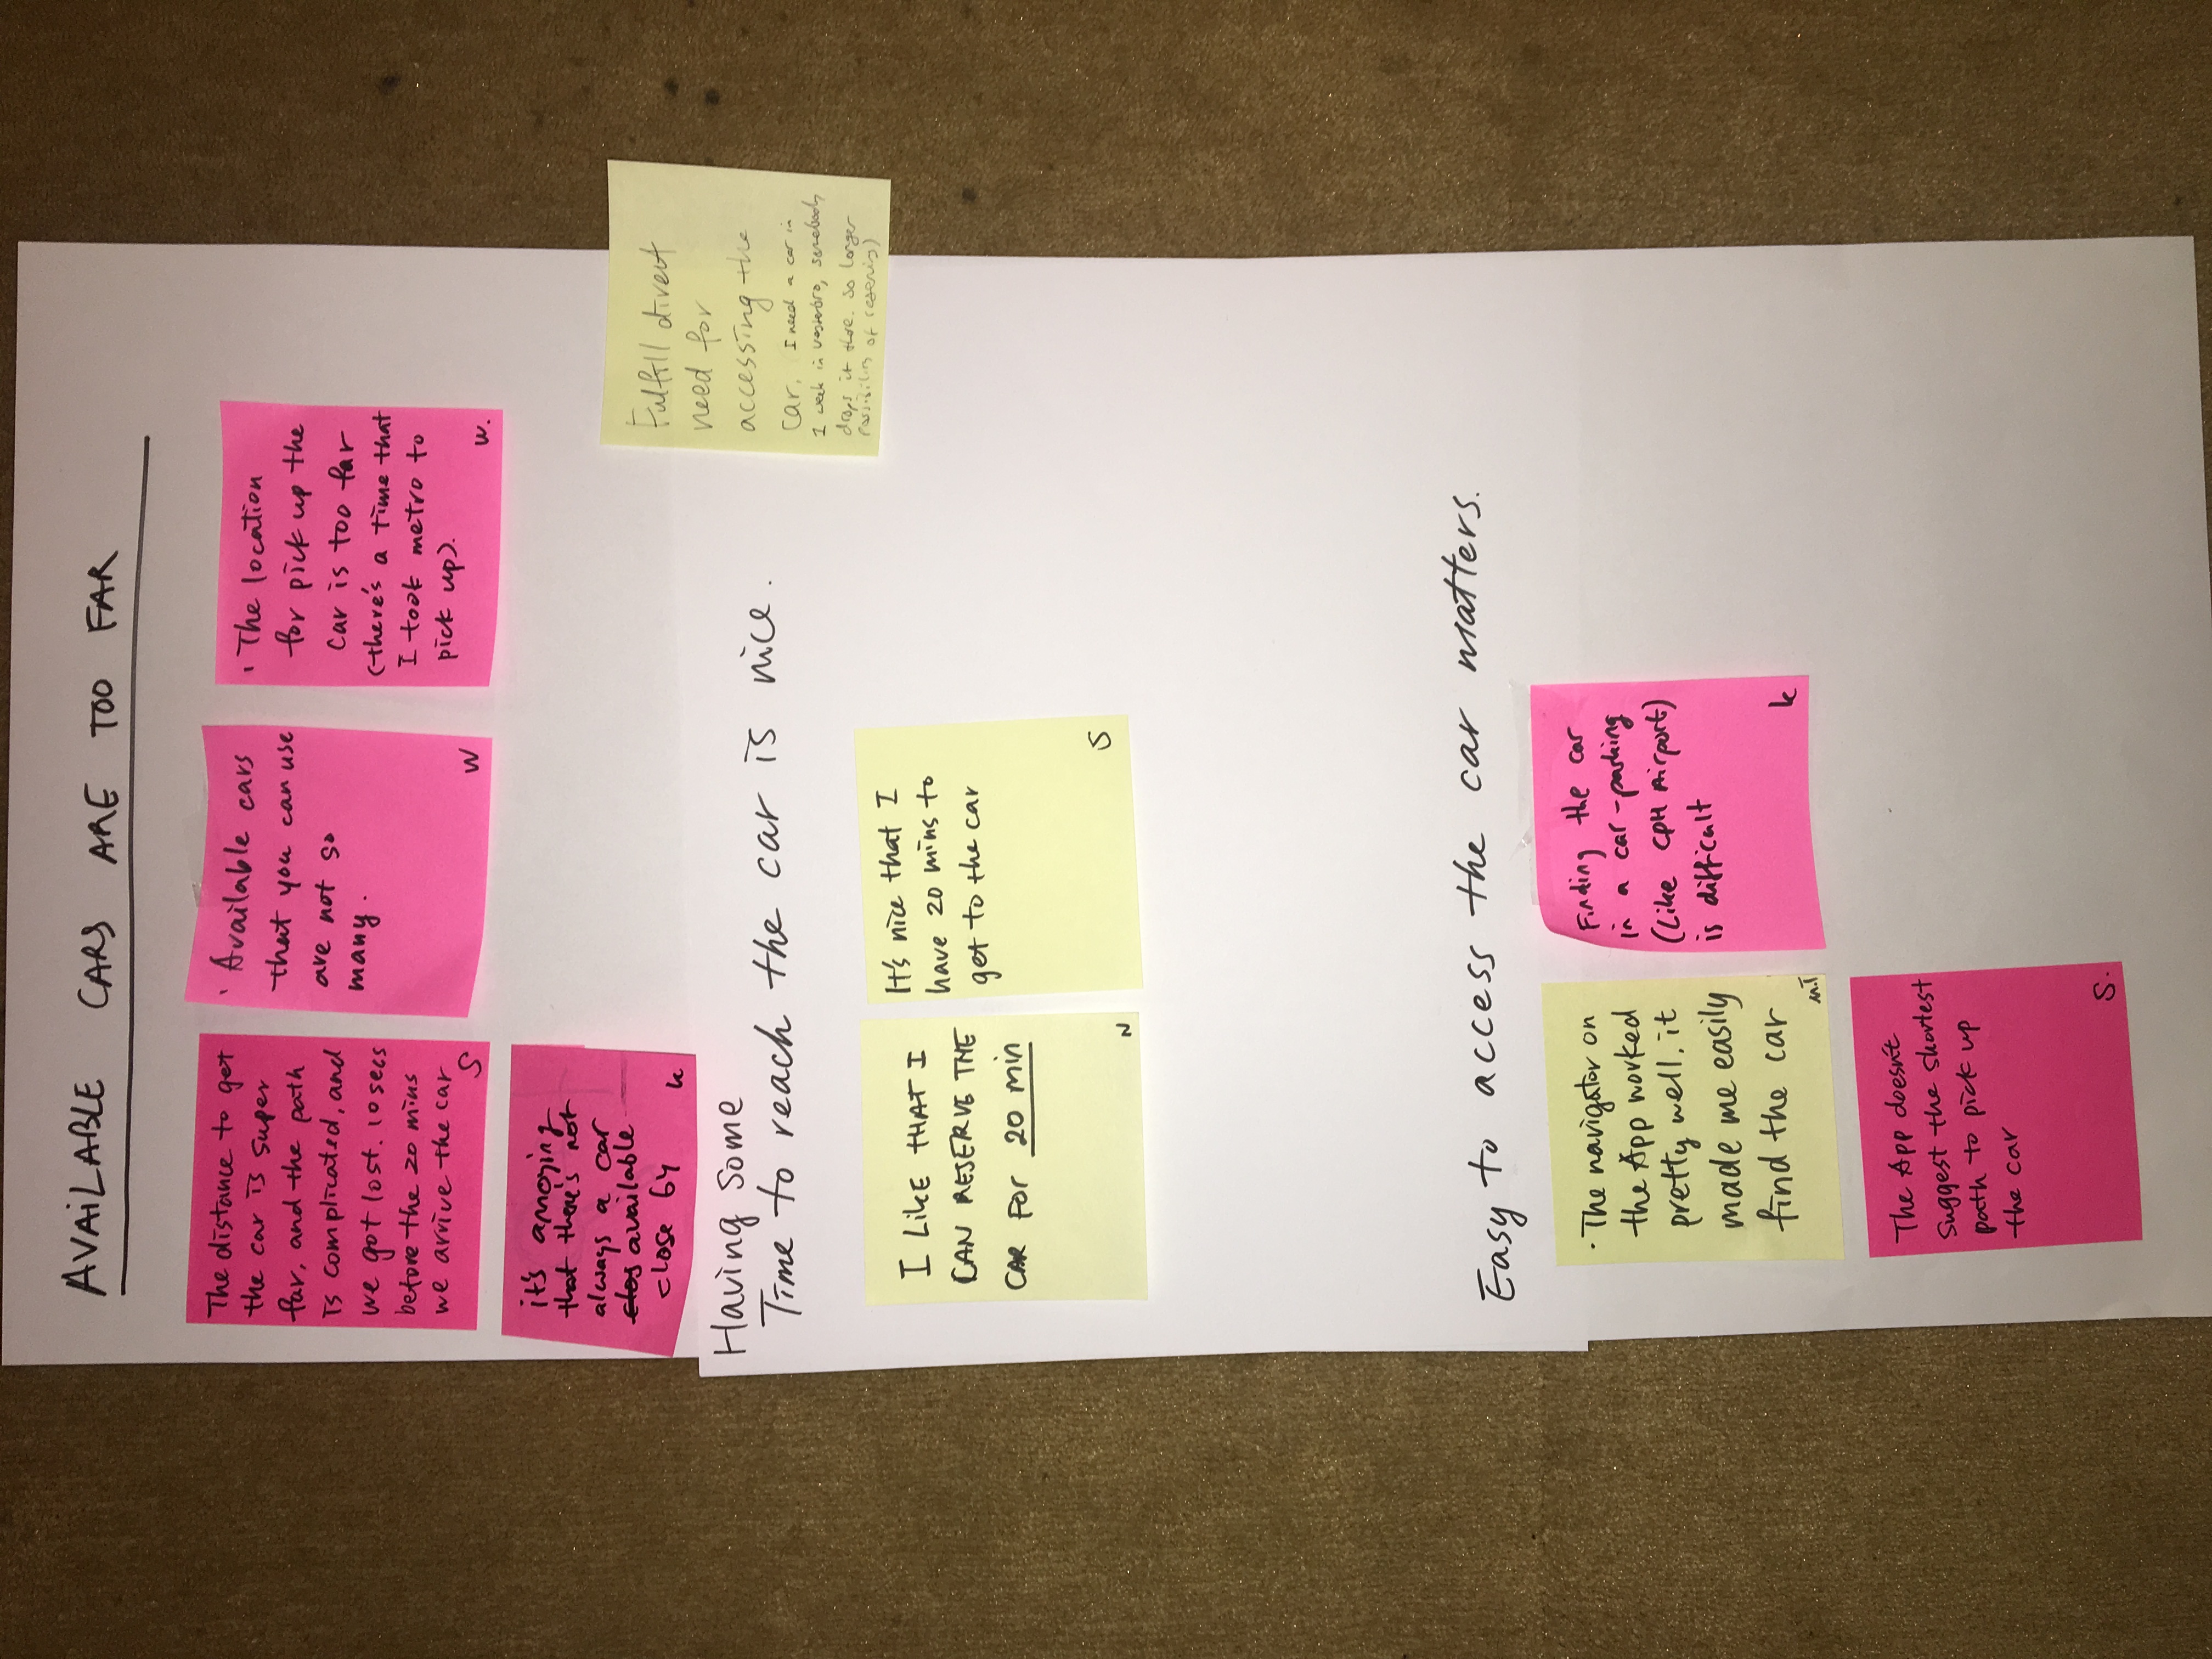 AVAiLABLE CARS ARE TOO FAR
The distance to get
the car is super
far, and the path
is complicated, and
we got lost. 10 secs
before the 20 mins
we arrive the car
S
· Available cars
that you can use
are not so
many.
W
· The location
for pick up the
car is too far
(there's a time that
I took metro to
pick up).
W.
it's annoying
that there's not
always a car
clos available
close by
k
Fulfill direct
need for
accessing the
car. I need a car in
1 week in vesterbro, somebody
drops it there. so longer
possibility of reserving)
Having some
Time to reach the car is nice.
I LikE THAT I
CAN RESERVE THE
CAR FOR 20 min
N
It's nice that I
have 20 mins to
get to the car
S
Easy to access the car matters.
· The navigator on
the App worked
pretty well. it
made me easily
find the car
M.T
Finding the car
in a car-parking
(Like CPH Airport)
is difficult
k
The App doesn't
suggest the shortest
path to pick up
the car
S.